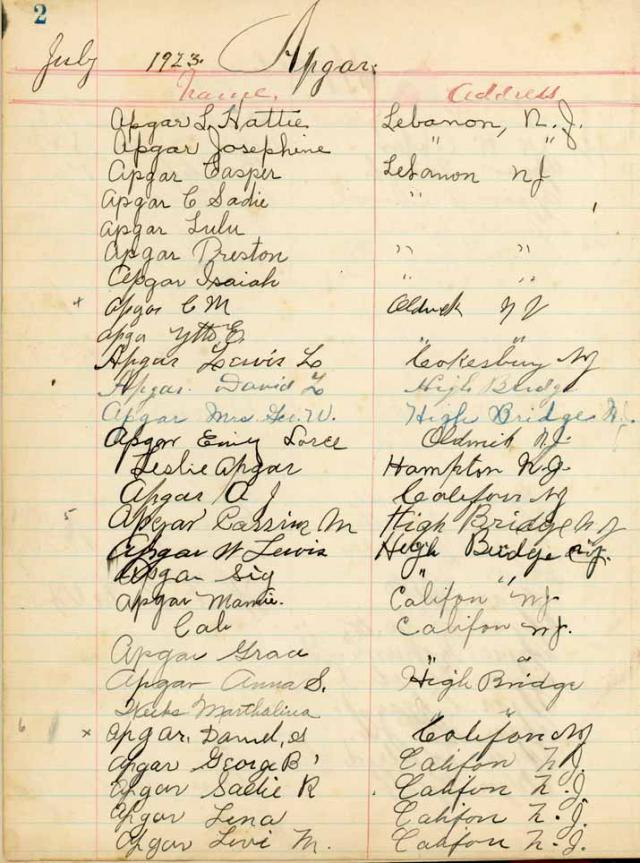 2
July 1923. Apgar.
Name. Address
Apgar L. Hattie Lebanon, N. J.
Apgar Josephine " "
Apgar Casper Lebanon NJ
Apgar C Sadie "
Apgar Lulu
Apgar Preston " "
Apgar Isaiah " "
x Apgar C M Oldwick N J
Apgar E.
Apgar Lewis L " Cokesbury NJ
Apgar. David L High Bridge
Apgar Mrs Geo. W. High Bridge N.J.
Apgar Emy Lorce Oldwick N.J.
Leslie Apgar Hampton N.J.
Apgar A J Califon NJ
5 Apgar M High Bridge NJ
Apgar W Lewis High Bridge N.J.
Apgar Sig " "
Apgar Mamie. Califon NJ
Califon NJ.
Apgar Grace " "
Apgar Anna S. High Bridge
Marthalina "
6 x Apgar. Daniel, S Califon NJ
Apgar George B Califon N. J
Apgar Sadie R Califon N. J
Apgar Lena Califon N. J.
Apgar Levi M. Califon N. J.